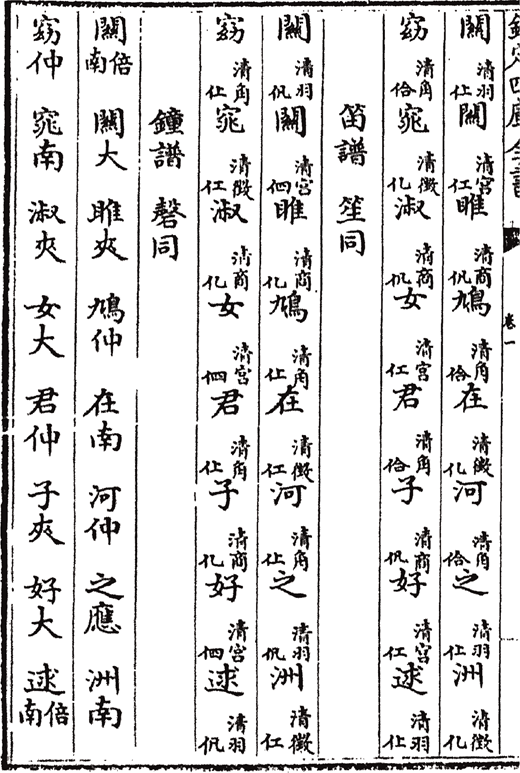 欽定四庫全書 卷一
關清羽仩關清宮仜雎清商仉鳩清角佮在清徵化河清角佮之清羽仩洲清徵化
窈清角佮窕清徵化淑清商仉女清宮仜君清角佮子清商仉好清宮仜逑清羽仩
笛譜 笙同
關清羽仉關清宮伵雎清商化鳩清角仩在清徵仜河清角仩之清羽仉洲清徵仜
窈清角仩窕清徵仜淑清商化女清宮伵君清角仩子清商化好清宮伵逑清羽仉
鐘譜 磬同
關倍南 關大 雎夾 鳩仲 在南 河仲 之應 洲南
窈仲 窕南 淑夾 女大 君仲 子夾 好大 逑倍南